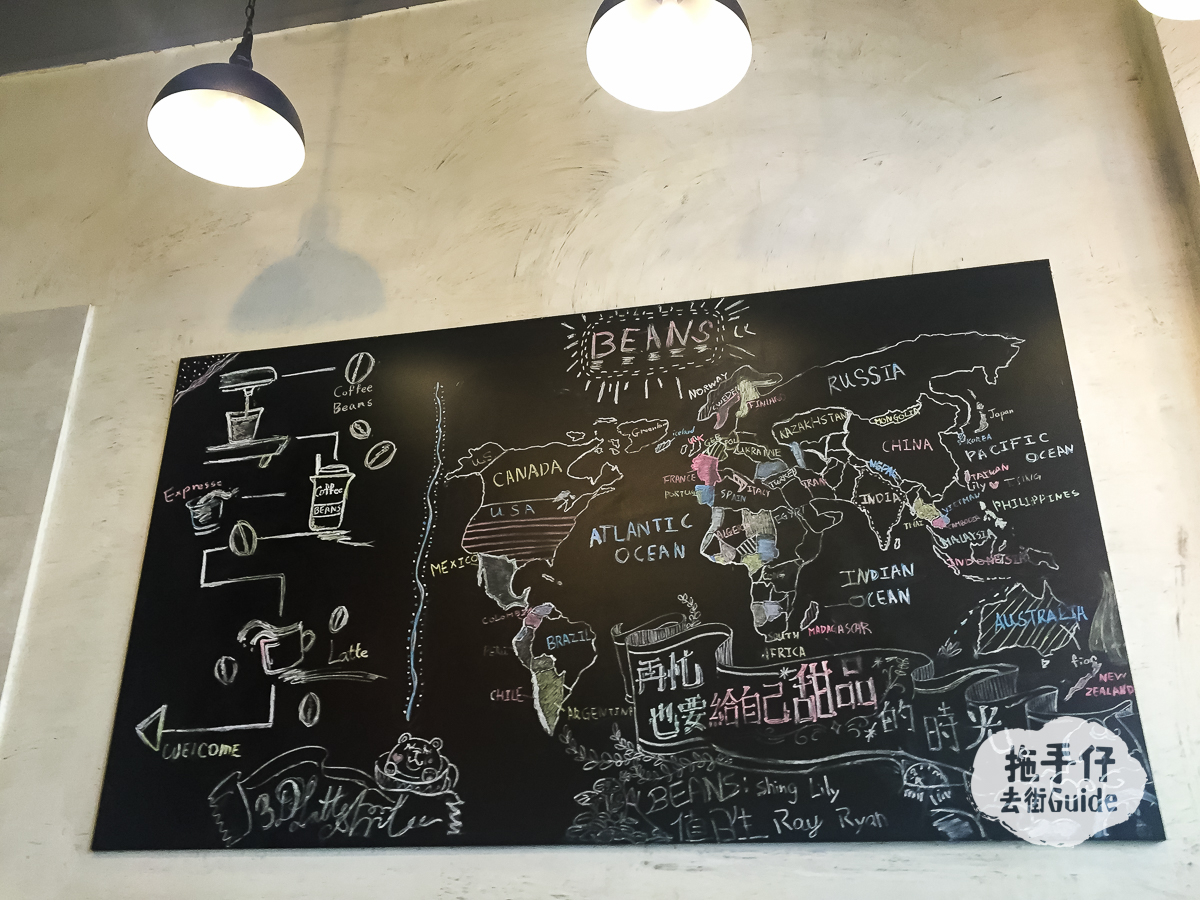 BEANS
Coffee
Beans
Coffee
BEANS
Expresso
Latte
WELCOME
3D Latte
US
CANADA
USA
MEXICO
Greenland
Iceland
ATLANTIC
OCEAN
BRAZIL
PERU
CHILE
ARGENTINA
NORWAY
SWEDEN
FINLAND
RUSSIA
UK
UKRAINE
KAZAKHSTAN
MONGOLIA
CHINA
Japan
KOREA
PACIFIC
OCEAN
FRANCE
SPAIN
ITALY
TURKEY
IRAN
NEPAL
INDIA
TAIWAN
Lily ♥ TSING
PHILIPPINES
VIETNAM
THAI
CAMBODIA
MALAYSIA
INDONESIA
EGYPT
INDIAN
OCEAN
MADAGASCAR
SOUTH
AFRICA
AUSTRALIA
NEW
ZEALAND
再忙
也要給自己甜品
的時光
BEANS: shing Lily
值日生 Ray Ryan
拖手仔
去街Guide